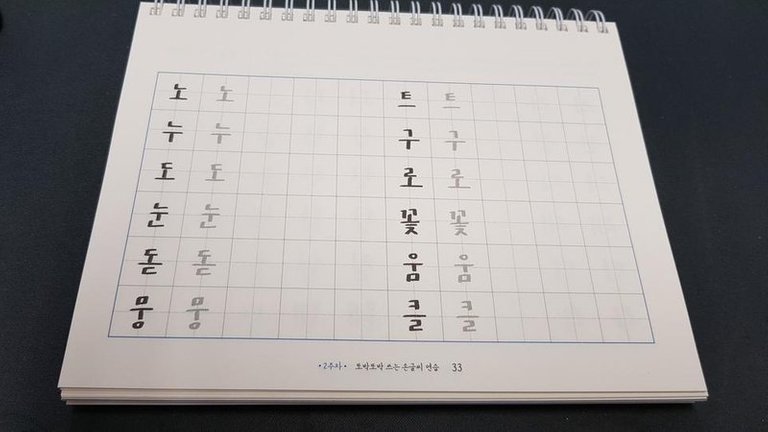 노 노 트 트
누 누 구 구
도 도 로 로
눈 눈 꽃 꽃
돋 돋 움 움
뭉 뭉 클 클
•2주차• 또박또박 쓰는 손글씨 연습 33